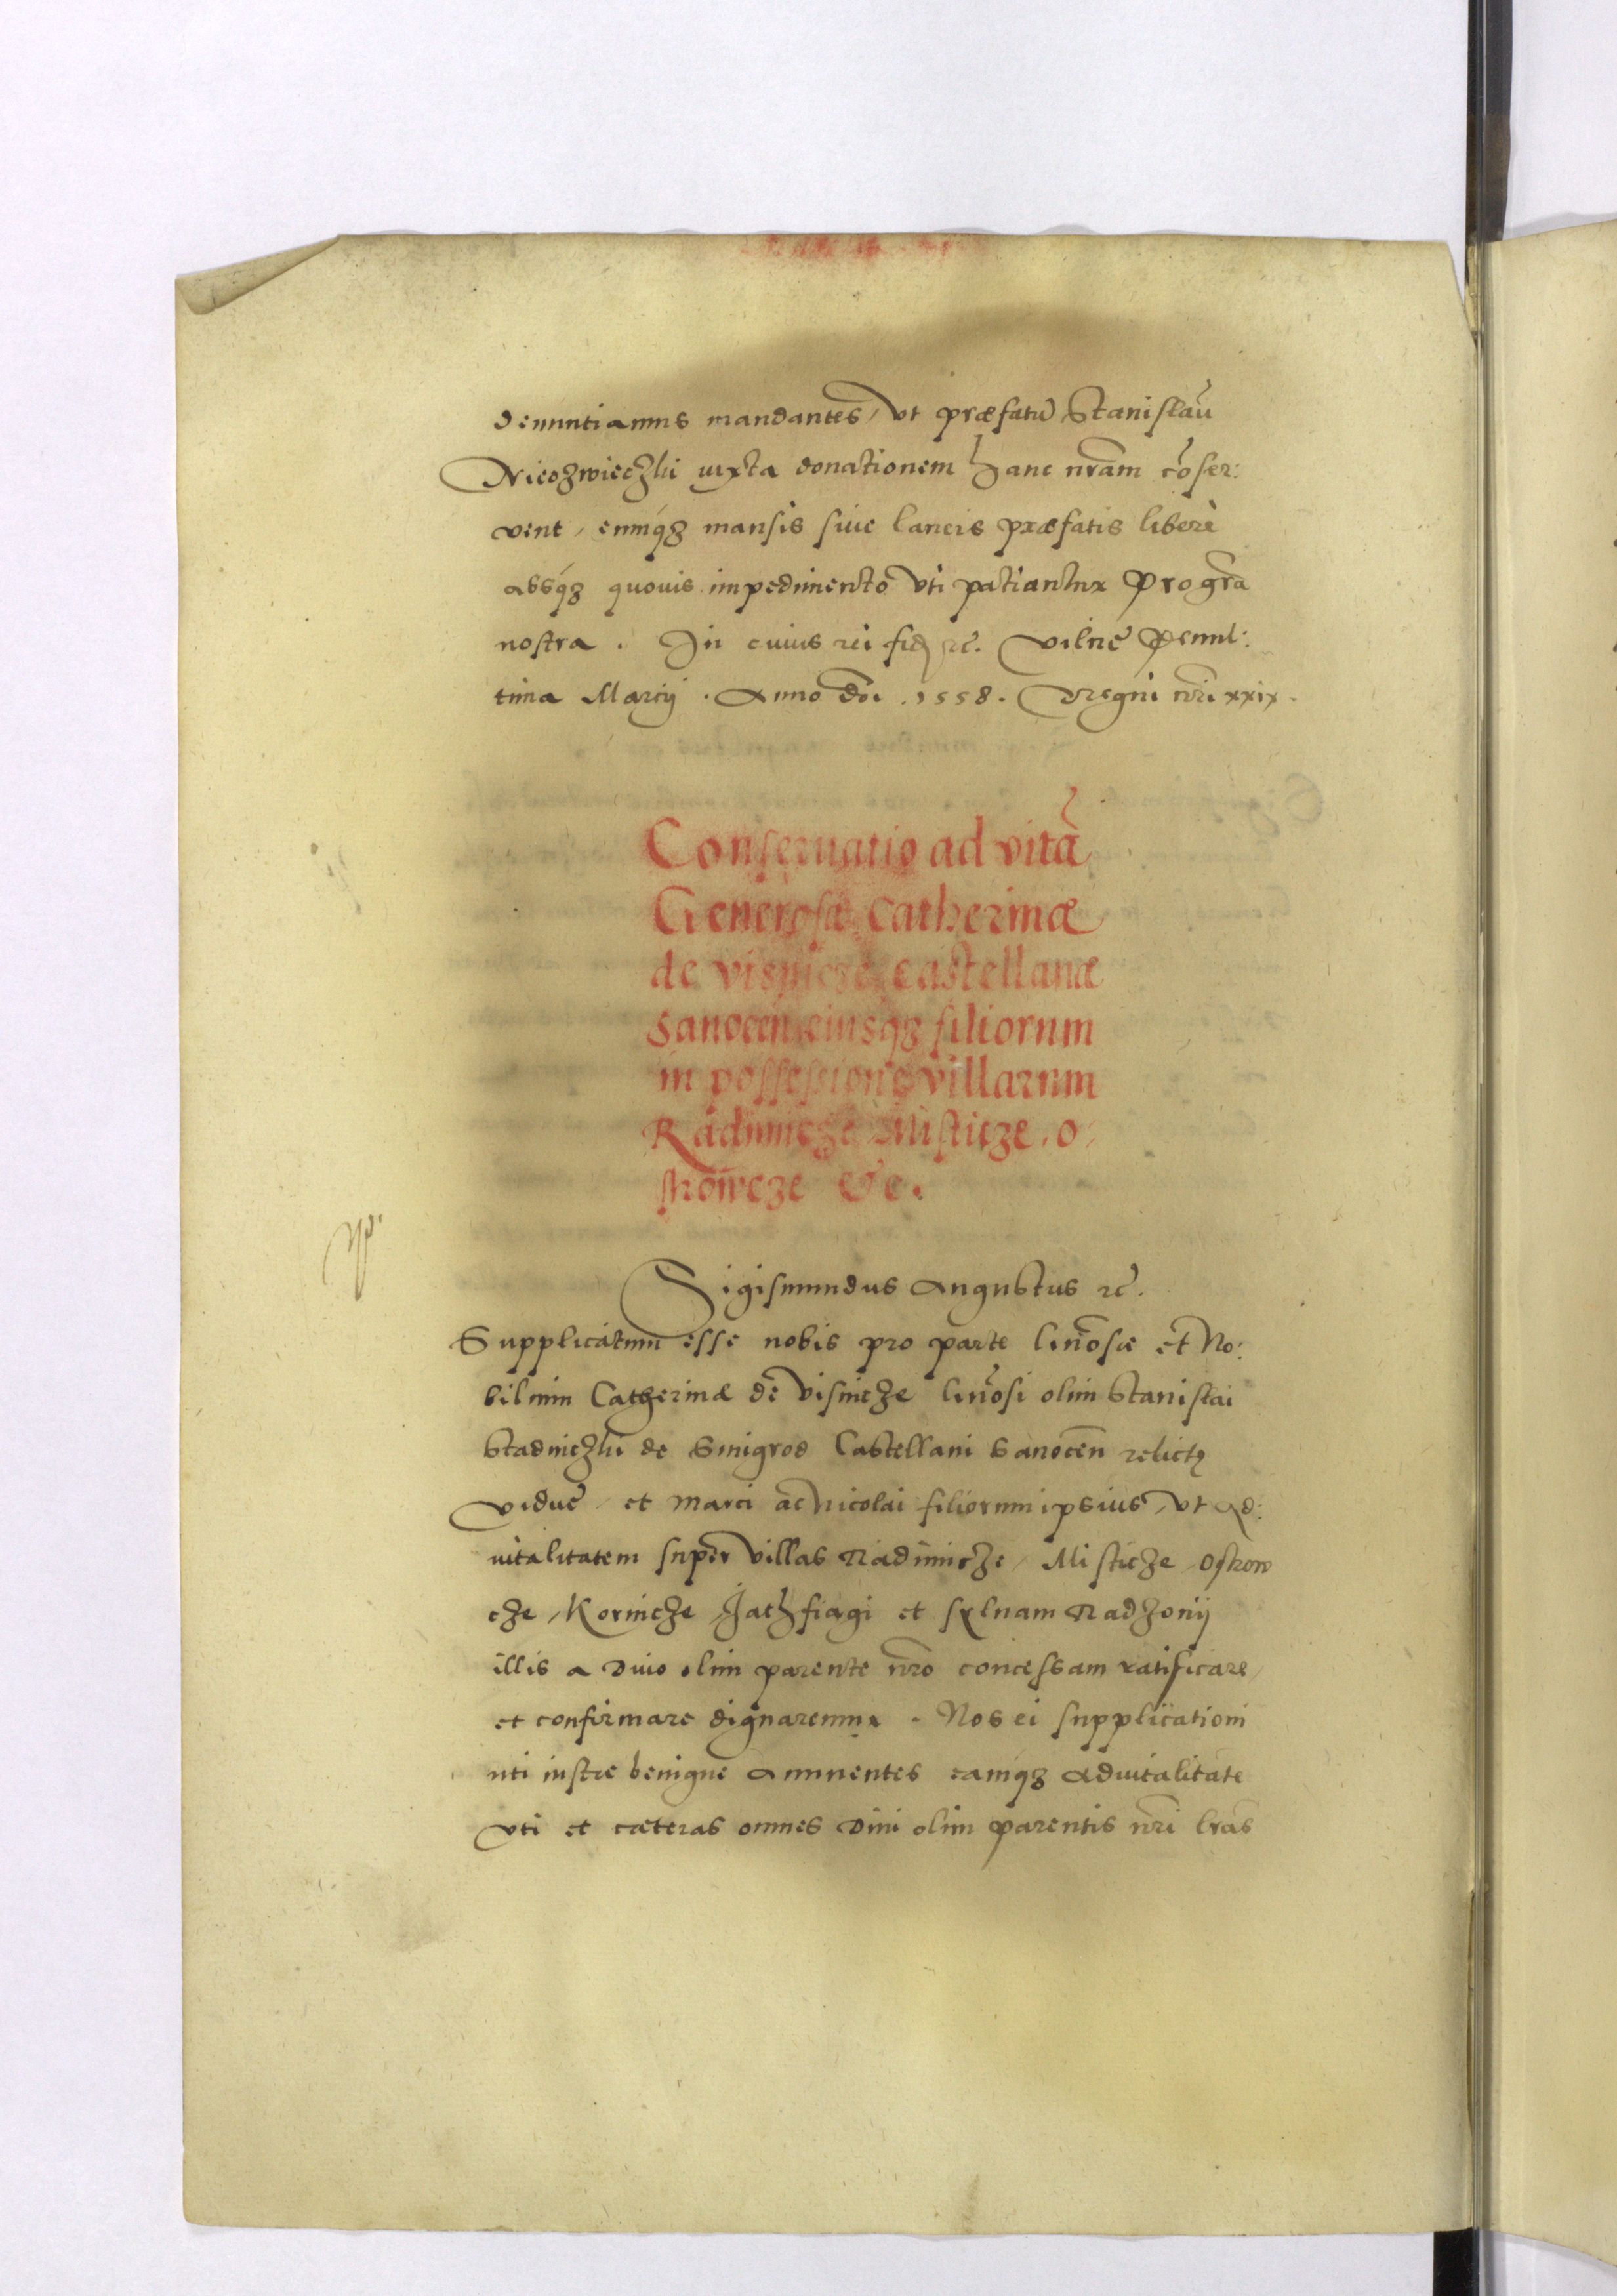 denuntiamus mandantes, vt præfatũ Stanislaũ
Nieczwieczki iuxta donationem hanc nr̃am cõser:
vent, eumq́ʒ mansis siue laneis præfatis liberè
absq́ʒ quouis impedimento vti patiantur pro gr̃a
nostra. In cuius rei fidę rc̃. Vilnę Penul:
tima Marcij. Anno dñi .1558. Vregni nr̃i xxix.
Conseruatio ad vitã
Generosæ Catherinæ
de Visnicze Castellanæ
Sanocen̄ eiusqʒ filiorum
in possessione villarum
Radinicze, Misticze, O,
strowcze &c.
Sigismundus Augustus rc̃.
Supplicatum esse nobis pro parte Gn̄osæ et No:
bilium Catherinæ de Visnicze Gn̄osi olim Stanislai
Stadniczki de Smigrod Castellani Sanocen̄ relictę
viduę, et Marci ac Nicolai filiorum ipsius, vt ad:
uitalitatem super villas Radinicze, Misticze, Ostrow
cze, Kornicze Jathfiagi et syluam Radzonij
illis a Diuo olim parente nr̃o concessam ratificare,
et confirmare dignaremur. Nos ei supplicationi
uti iustæ benigne annuentes eamq́ʒ aduitalitatẽ
vti et cæteras omnes Diui olim parentis nr̃i lr̃as